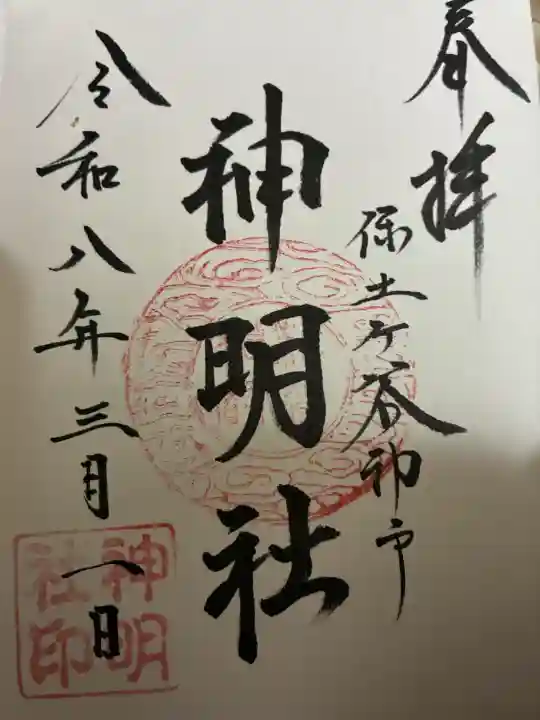 奉拝
保土ヶ谷神戸
神明社
令和八年三月一日
神明社印